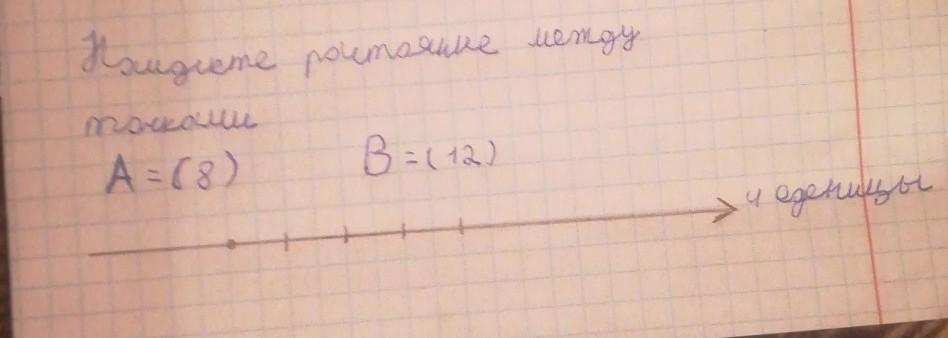 Найдите растояние между
точками
A=(8) B=(12)
4 еденицы